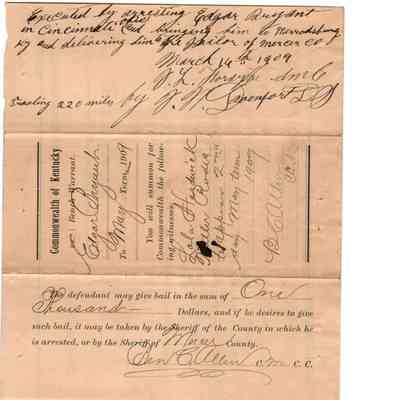 Executed by arresting Edgar Bryant
in Cincinnati Ohio and bringing him to Harrodsburg
Ky and delivering him to the Jailor of Mercer Co
March 14th 1909
Traveling 220 miles by
Commonwealth of Kentucky
Bench Warrant.
Edgar Bryant
To May Term, 1909
You will summon for
Commonwealth the follow-
ing witnesses:
Lola Hardwick
to appear 2nd
day May term
1909
The defendant may give bail in the sum of One
Thousand Dollars, and if he desires to give
such bail, it may be taken by the Sheriff of the County in which he
is arrested, or by the Sheriff of Mercer County.
Ben C Allen C. M. C. C.